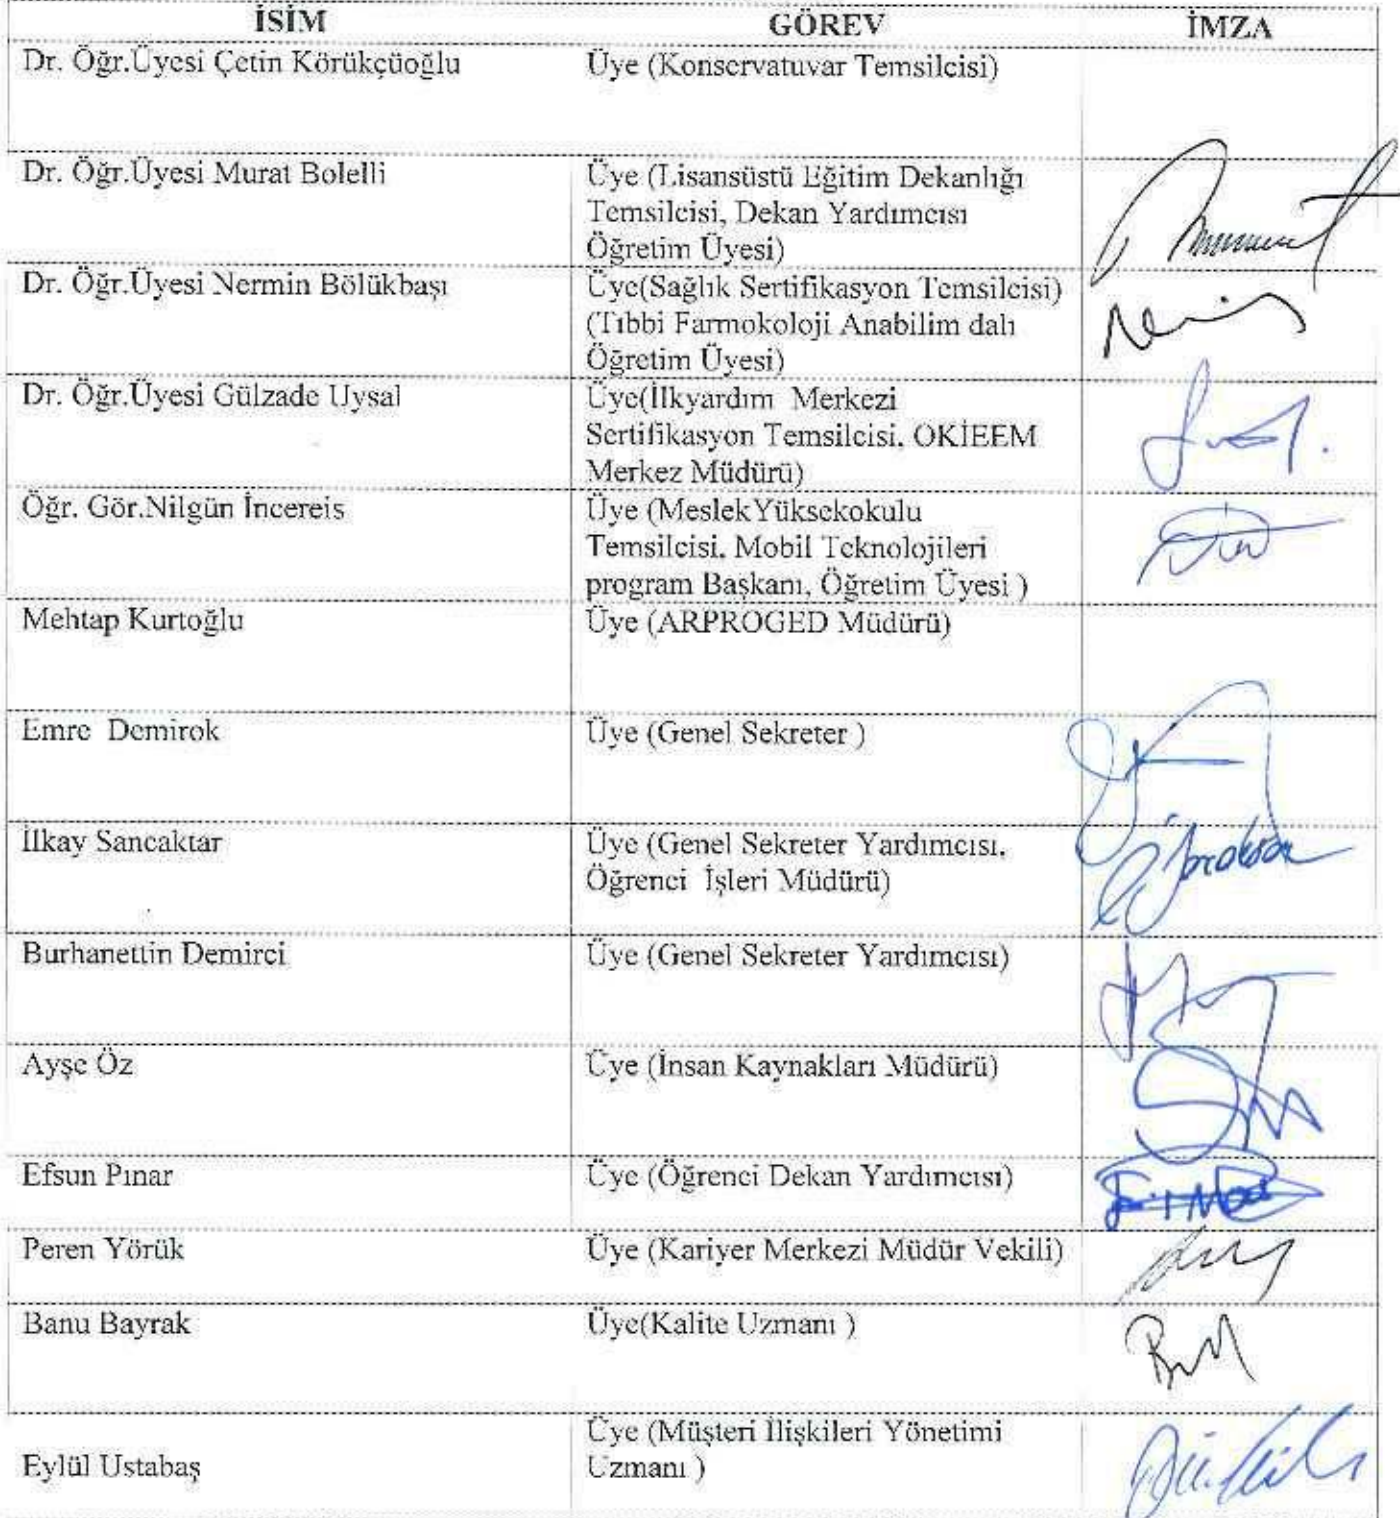 İSİM GÖREV İMZA
Dr. Öğr.Üyesi Çetin Körükçüoğlu Üye (Konservatuvar Temsilcisi)
Dr. Öğr.Üyesi Murat Bolelli Üye (Lisansüstü Eğitim Dekanlığı
Temsilcisi, Dekan Yardımcısı
Öğretim Üyesi)
Dr. Öğr.Üyesi Nermin Bölükbaşı Üye(Sağlık Sertifikasyon Temsilcisi)
(Tıbbi Farmokoloji Anabilim dalı
Öğretim Üyesi)
Dr. Öğr.Üyesi Gülzade Uysal Üye(İlkyardım Merkezi
Sertifikasyon Temsilcisi, OKİEEM
Merkez Müdürü)
Öğr. Gör.Nilgün İncereis Üye (MeslekYüksekokulu
Temsilcisi, Mobil Teknolojileri
program Başkanı, Öğretim Üyesi )
Mehtap Kurtoğlu Üye (ARPROGED Müdürü)
Emre Demirok Üye (Genel Sekreter )
İlkay Sancaktar Üye (Genel Sekreter Yardımcısı,
Öğrenci İşleri Müdürü)
Burhanettin Demirci Üye (Genel Sekreter Yardımcısı)
Ayşe Öz Üye (İnsan Kaynakları Müdürü)
Efsun Pınar Üye (Öğrenci Dekan Yardımcısı)
Peren Yörük Üye (Kariyer Merkezi Müdür Vekili)
Banu Bayrak Üye(Kalite Uzmanı )
Üye (Müşteri İlişkileri Yönetimi
Eylül Ustabaş Uzmanı )